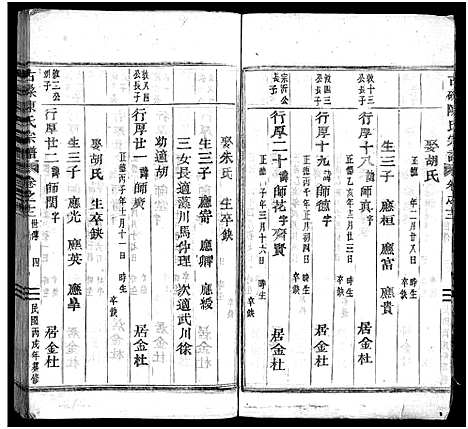 古磉陳氏宗譜
娶胡氏 年二月廿八日 時生 卒缺
生三子 應桓 應富 應貴
敦十三公長子
行厚十八 諱師真 字 居金杜
正德乙亥年三月廿三日 時生 卒缺
敦四三公長子
行厚十九 諱師 字 居金杜
正德 年正月初四日 時生 卒缺
宗沂公長子
行厚二十 諱師范 字齊賢
正德 年三月十六日 時生 卒缺
娶朱氏 生卒缺
生三子 應奇 應卿 應綬
三女長適藻川馬仲理 次適武川徐
幼適胡
敦八四公長子
行厚廿一 諱師廣 居金杜
正德丙子年十月十一日 時生 卒缺
娶胡氏 生卒缺
生三子 應光 應英 應舉
敦三公
行厚廿二 諱師閔 字 居金杜
古磉陳氏宗譜 卷之三 世傳 四 民國丙戌年葺修